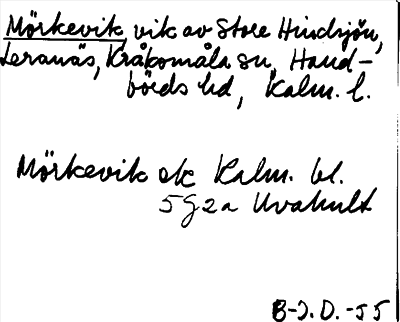 Mörkevik, vik av Store Hindsjön,
Leranäs, Kråksmåla sn, Hand-
börds hd, Kalm. l.
Mörkevik ek Kalm. bl.
5G2a Uvahult
B-J.D. -55